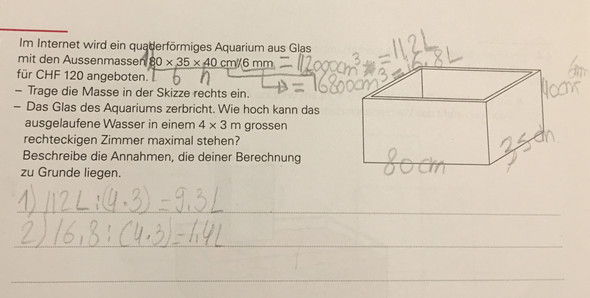 Im Internet wird ein quaderförmiges Aquarium aus Glas
mit den Aussenmassen 80 × 35 × 40 cm/6 mm = 112000cm³ = 112L
für CHF 120 angeboten. l b h = 16800cm³ = 16,8L
– Trage die Masse in der Skizze rechts ein.
– Das Glas des Aquariums zerbricht. Wie hoch kann das
ausgelaufene Wasser in einem 4 × 3 m grossen
rechteckigen Zimmer maximal stehen?
Beschreibe die Annahmen, die deiner Berechnung
zu Grunde liegen.
6mm
40cm
35cm
80cm
1) 112L:(4·3)=9,3L
2) 16,8:(4·3)=1,4L